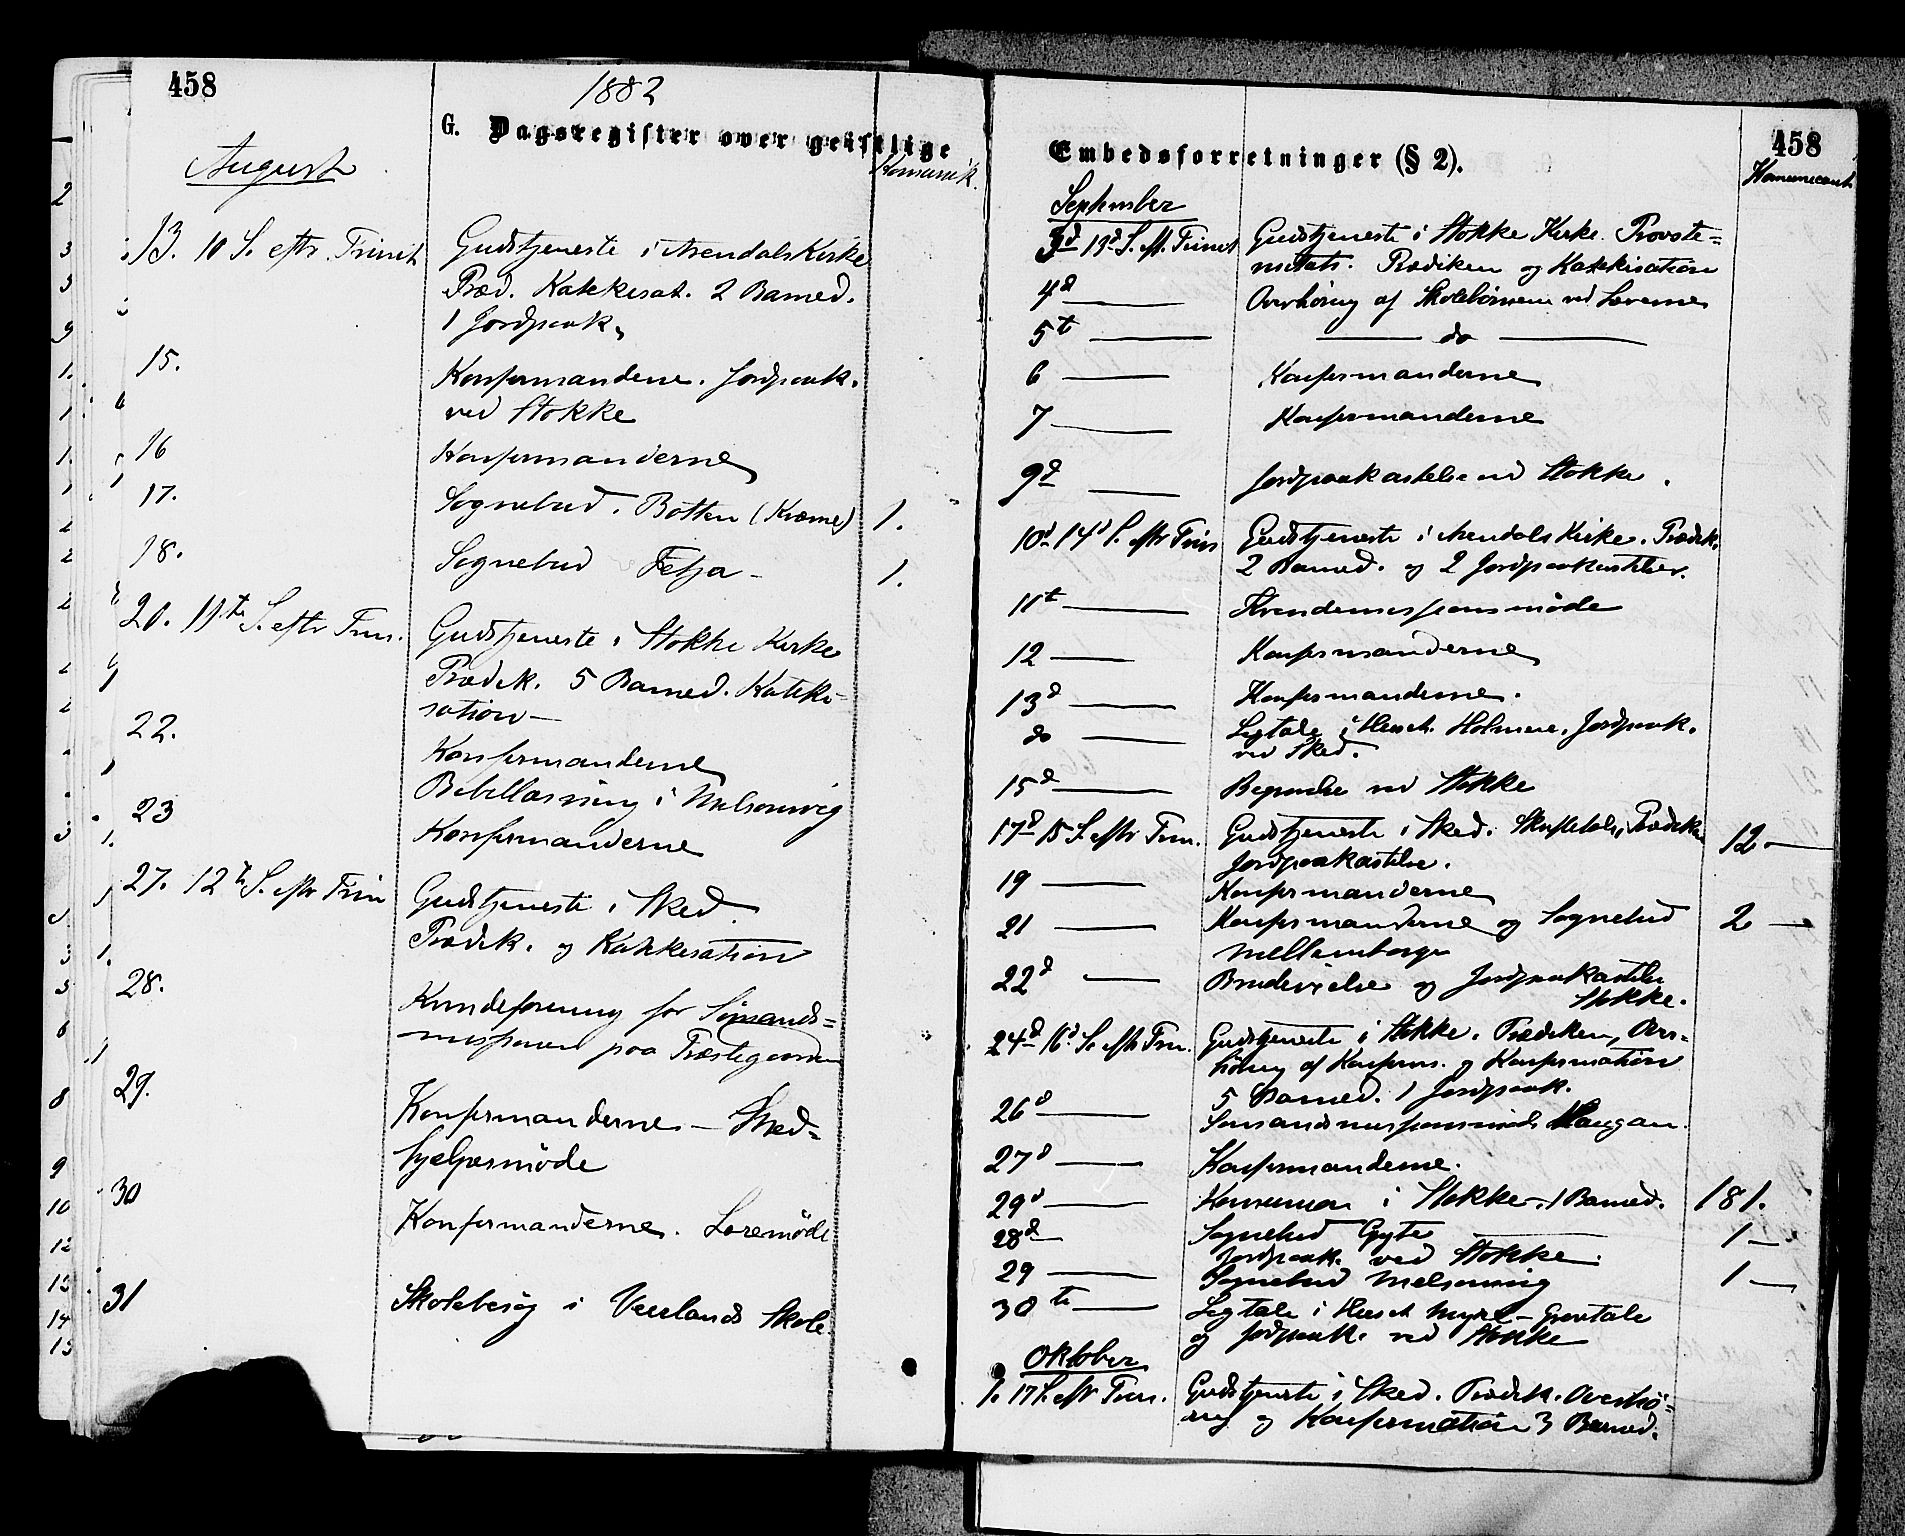 458
1882
G. Dagsregister over geistlige
Komunik.
August
13. 10 S. eftr. Trinit Gudstjeneste i Arendals Kirke
Præd. Katekisat. 2 Barned.
1 Jordpaak.
15. Konfirmanderne. Jordpaak.
ved Stokke
16 Konfirmanderne
17. Sognebud. Botten (Kræme) 1.
18. Sognebud Fetja - 1.
20. 11te S. eftr Trin. Gudstjeneste i Stokke Kirke
Prædik. 5 Barned. Kateki-
sation -
22. Konfirmanderne
Bibellæsning i Melsomvig
23 Konfirmanderne
27. 12te S. eftr Trin Gudstjeneste i Sked.
Prædik. og Katekisation
28. Kvindeforening for Sømands=
missionen paa Præstegaarden
29. Konfirmanderne - Sked=
hjelpesmöde
30 Konfirmanderne. Læremöde
31 Skolebesøg i Veerlands Skole.
Embedsforretninger (§ 2).
458
Komunicant.
September
3d 13d S. eft. Trinit Gudstjeneste i Stokke Kirke. Provste=
visitats. Prædiken og Katekisation
4d Overhöring af Skolebörnene ved Lærerne
5t do
6 Konfirmanderne
7 Konfirmanderne
9d Jordpaakastelse ved Stokke.
10d 14d S. eftr Trin Gudstjeneste i Arendals Kirke. Prædik.
2 Barned. og 2 Jordpaakastelser.
11t Kvindemissionsmöde
12 Konfirmanderne
13d Konfirmanderne.
do Ligtale i Huset Holmene. Jordpaak.
ved Sked.
15d Begravelse ved Stokke
17d 15 S. eftr Trin. Gudstjeneste i Sked. Skriftetale, Prædiken 12 -
Jordpaakastelse.
19 Konfirmanderne
21 Konfirmanderne og Sognebud 2 -
Mellemborge
22d Brudevielse og Jordpaakastelse
Stokke.
24d 16d S. eftr Trin. Gudstjeneste i Stokke. Prædiken, Over-
höring af Konfirm. og Konfirmation
5 Barned. 1 Jordpaak.
26d Sömandsmissionsmöde Haugan.
27d Konfirmanderne.
29d Komunion i Stokke. 1 Barned. 181.
28d Sognebud Gyte 1 -
Jordpaak. ved Stokke.
29 Sognebud Melsomvig 1 -
30te Ligtale i Huset Myre - Gravtale
og Jordpaak. ved Stokke
Oktober
1. 17 S. eftr Trin. Gudstjeneste i Sked. Prædik. Overhö=
ring og Konfirmation 3 Barned.